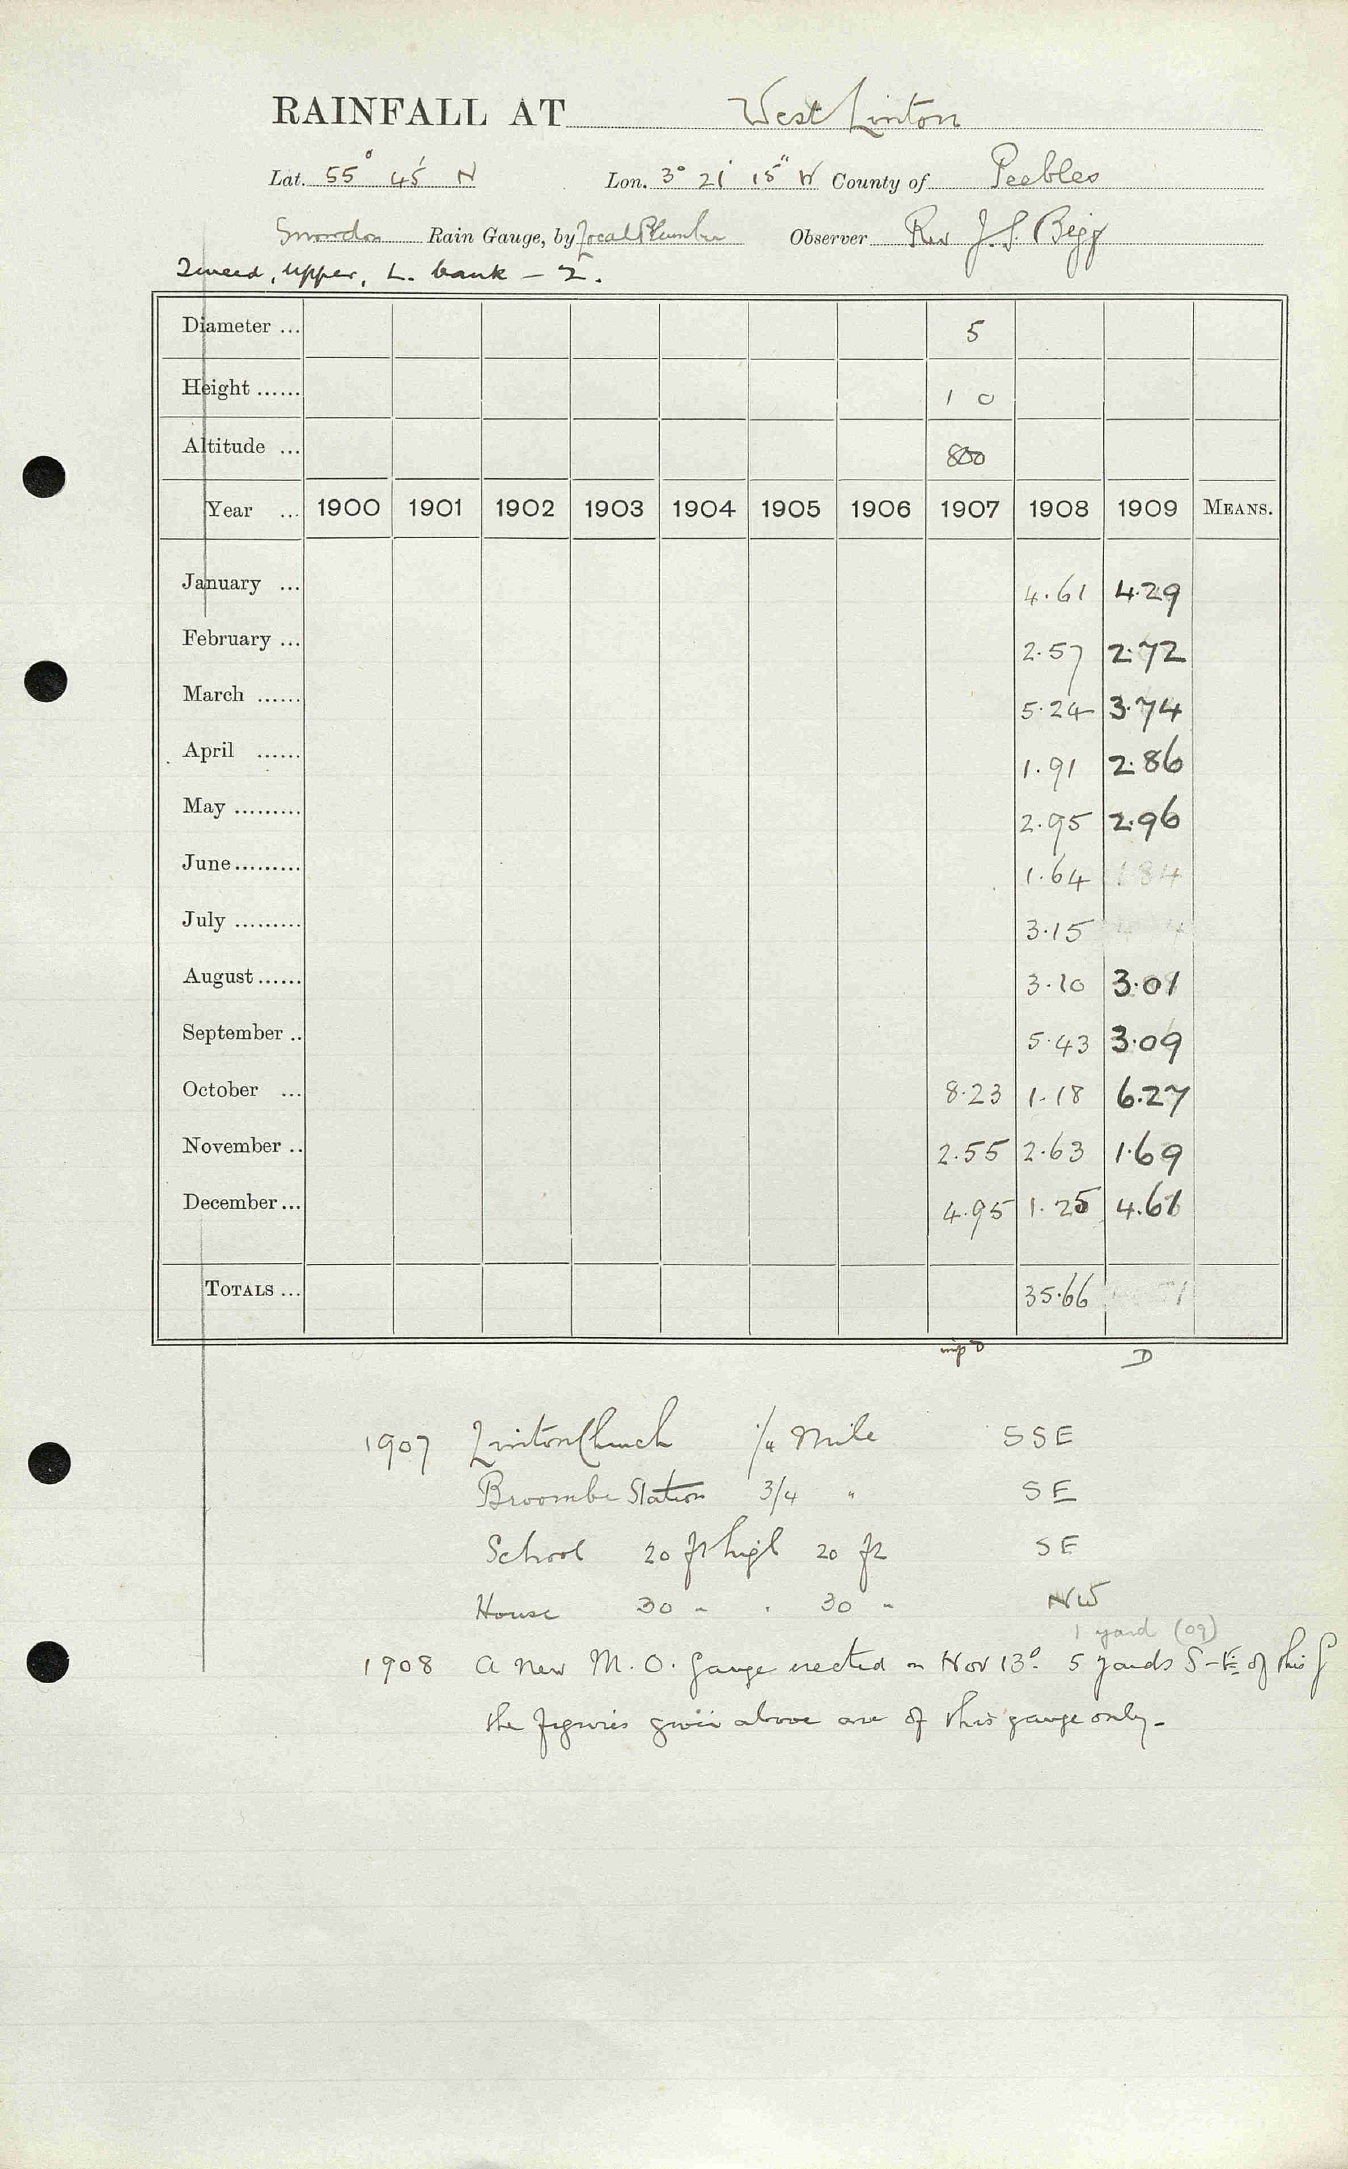 RAINFALL AT West Linton
Lat. 55° 45' N Lon. 3° 21' 15" W County of Peebles
Snowdon Rain Gauge, by Local Plumber Observer Rev J. S. Begg
Tweed, Upper, L. bank – 2.
Diameter ... 5
Height ...... 1 0
Altitude ... 800
Year ... 1900 1901 1902 1903 1904 1905 1906 1907 1908 1909 MEANS.
January ... 4.61 4.29
February ... 2.57 2.72
March ...... 5.24 3.74
April ...... 1.91 2.86
May ......... 2.95 2.96
June ......... 1.64 1 84
July ......... 3.15
August ...... 3.10 3.01
September .. 5.43 3.09
October ... 8.23 1.18 6.27
November .. 2.55 2.63 1.69
December ... 4.95 1.25 4.61
TOTALS ... 35.66
D
1907 Linton Church 1/4 Mile SSE
Station 3/4 " SE
School 20 ft high 20 ft SE
House 30 " " 30 " NW
1 yard (09)
1908 A new M.O. Gauge erected on Nov 13° 5 yards S-E of this G
the figures given above are of this gauge only -